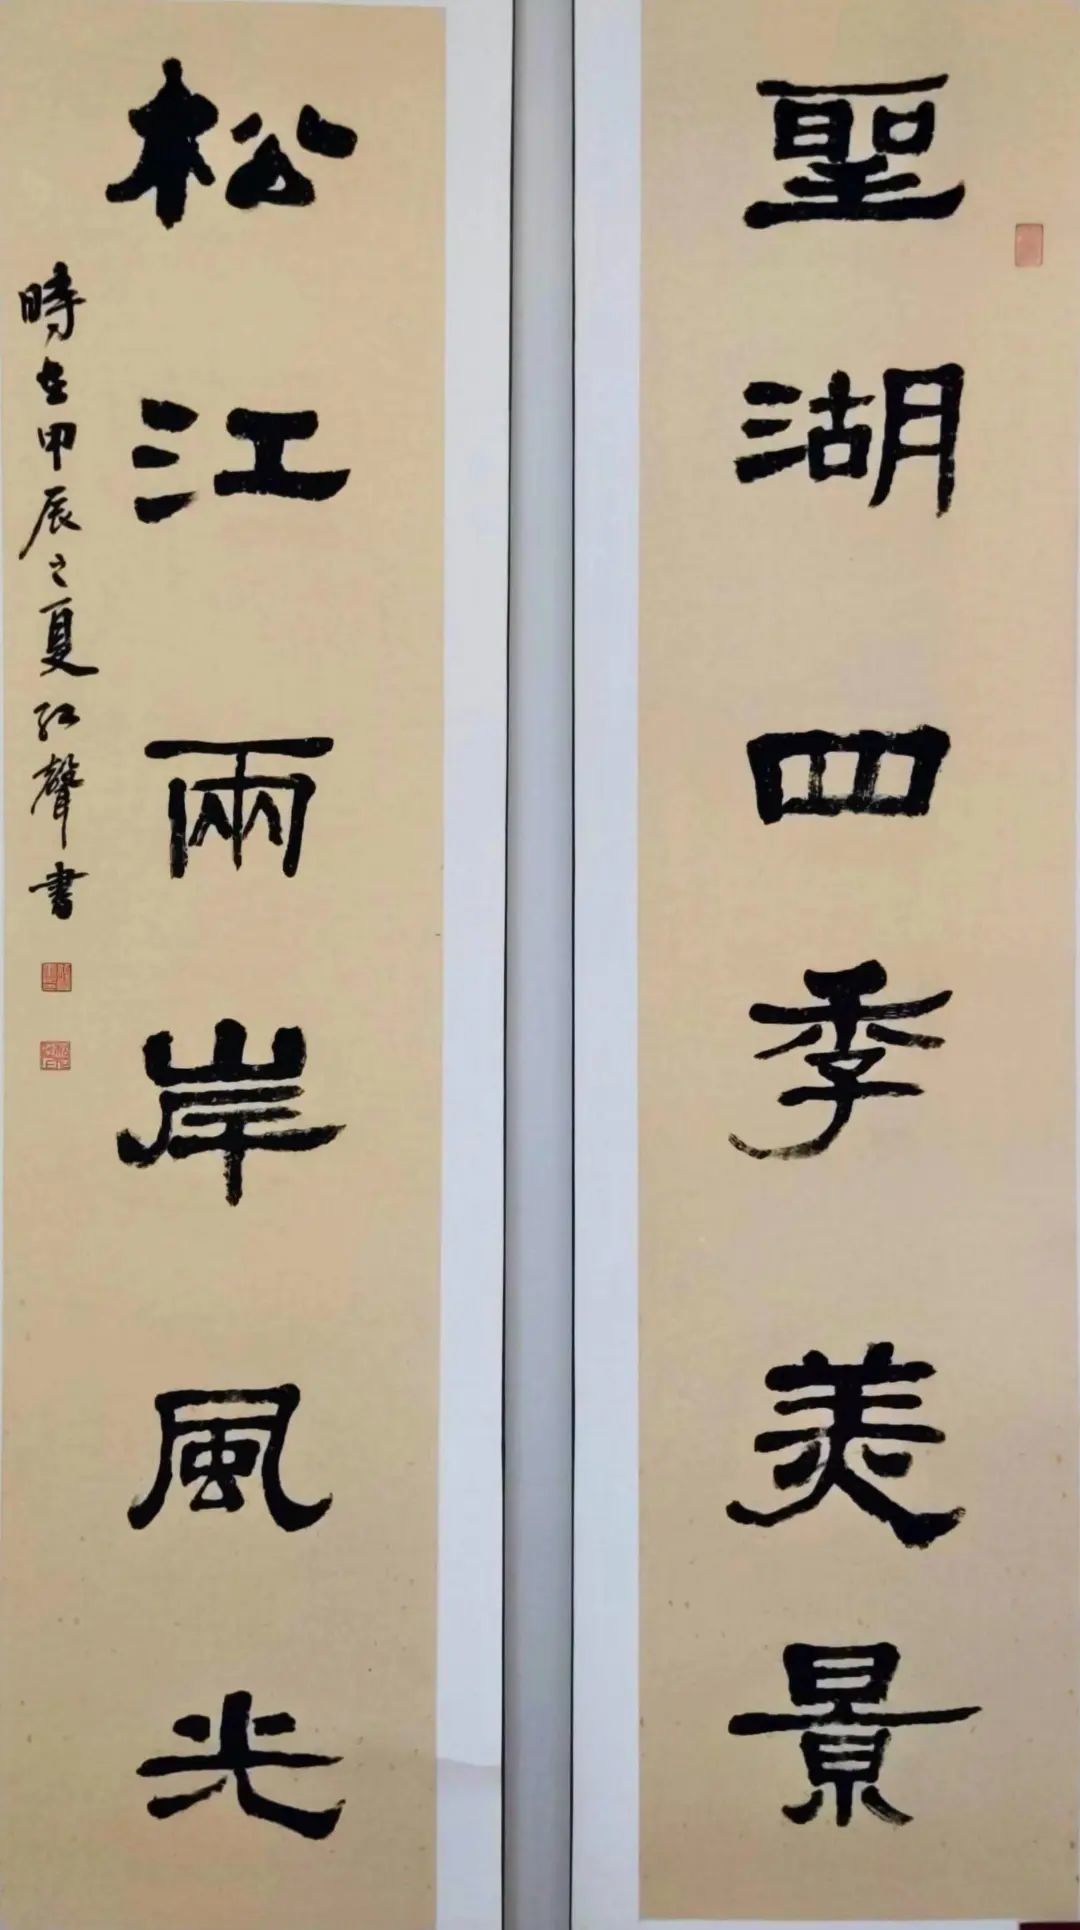 聖湖四季美景
松江兩岸風光
時在甲辰之夏紅聲書